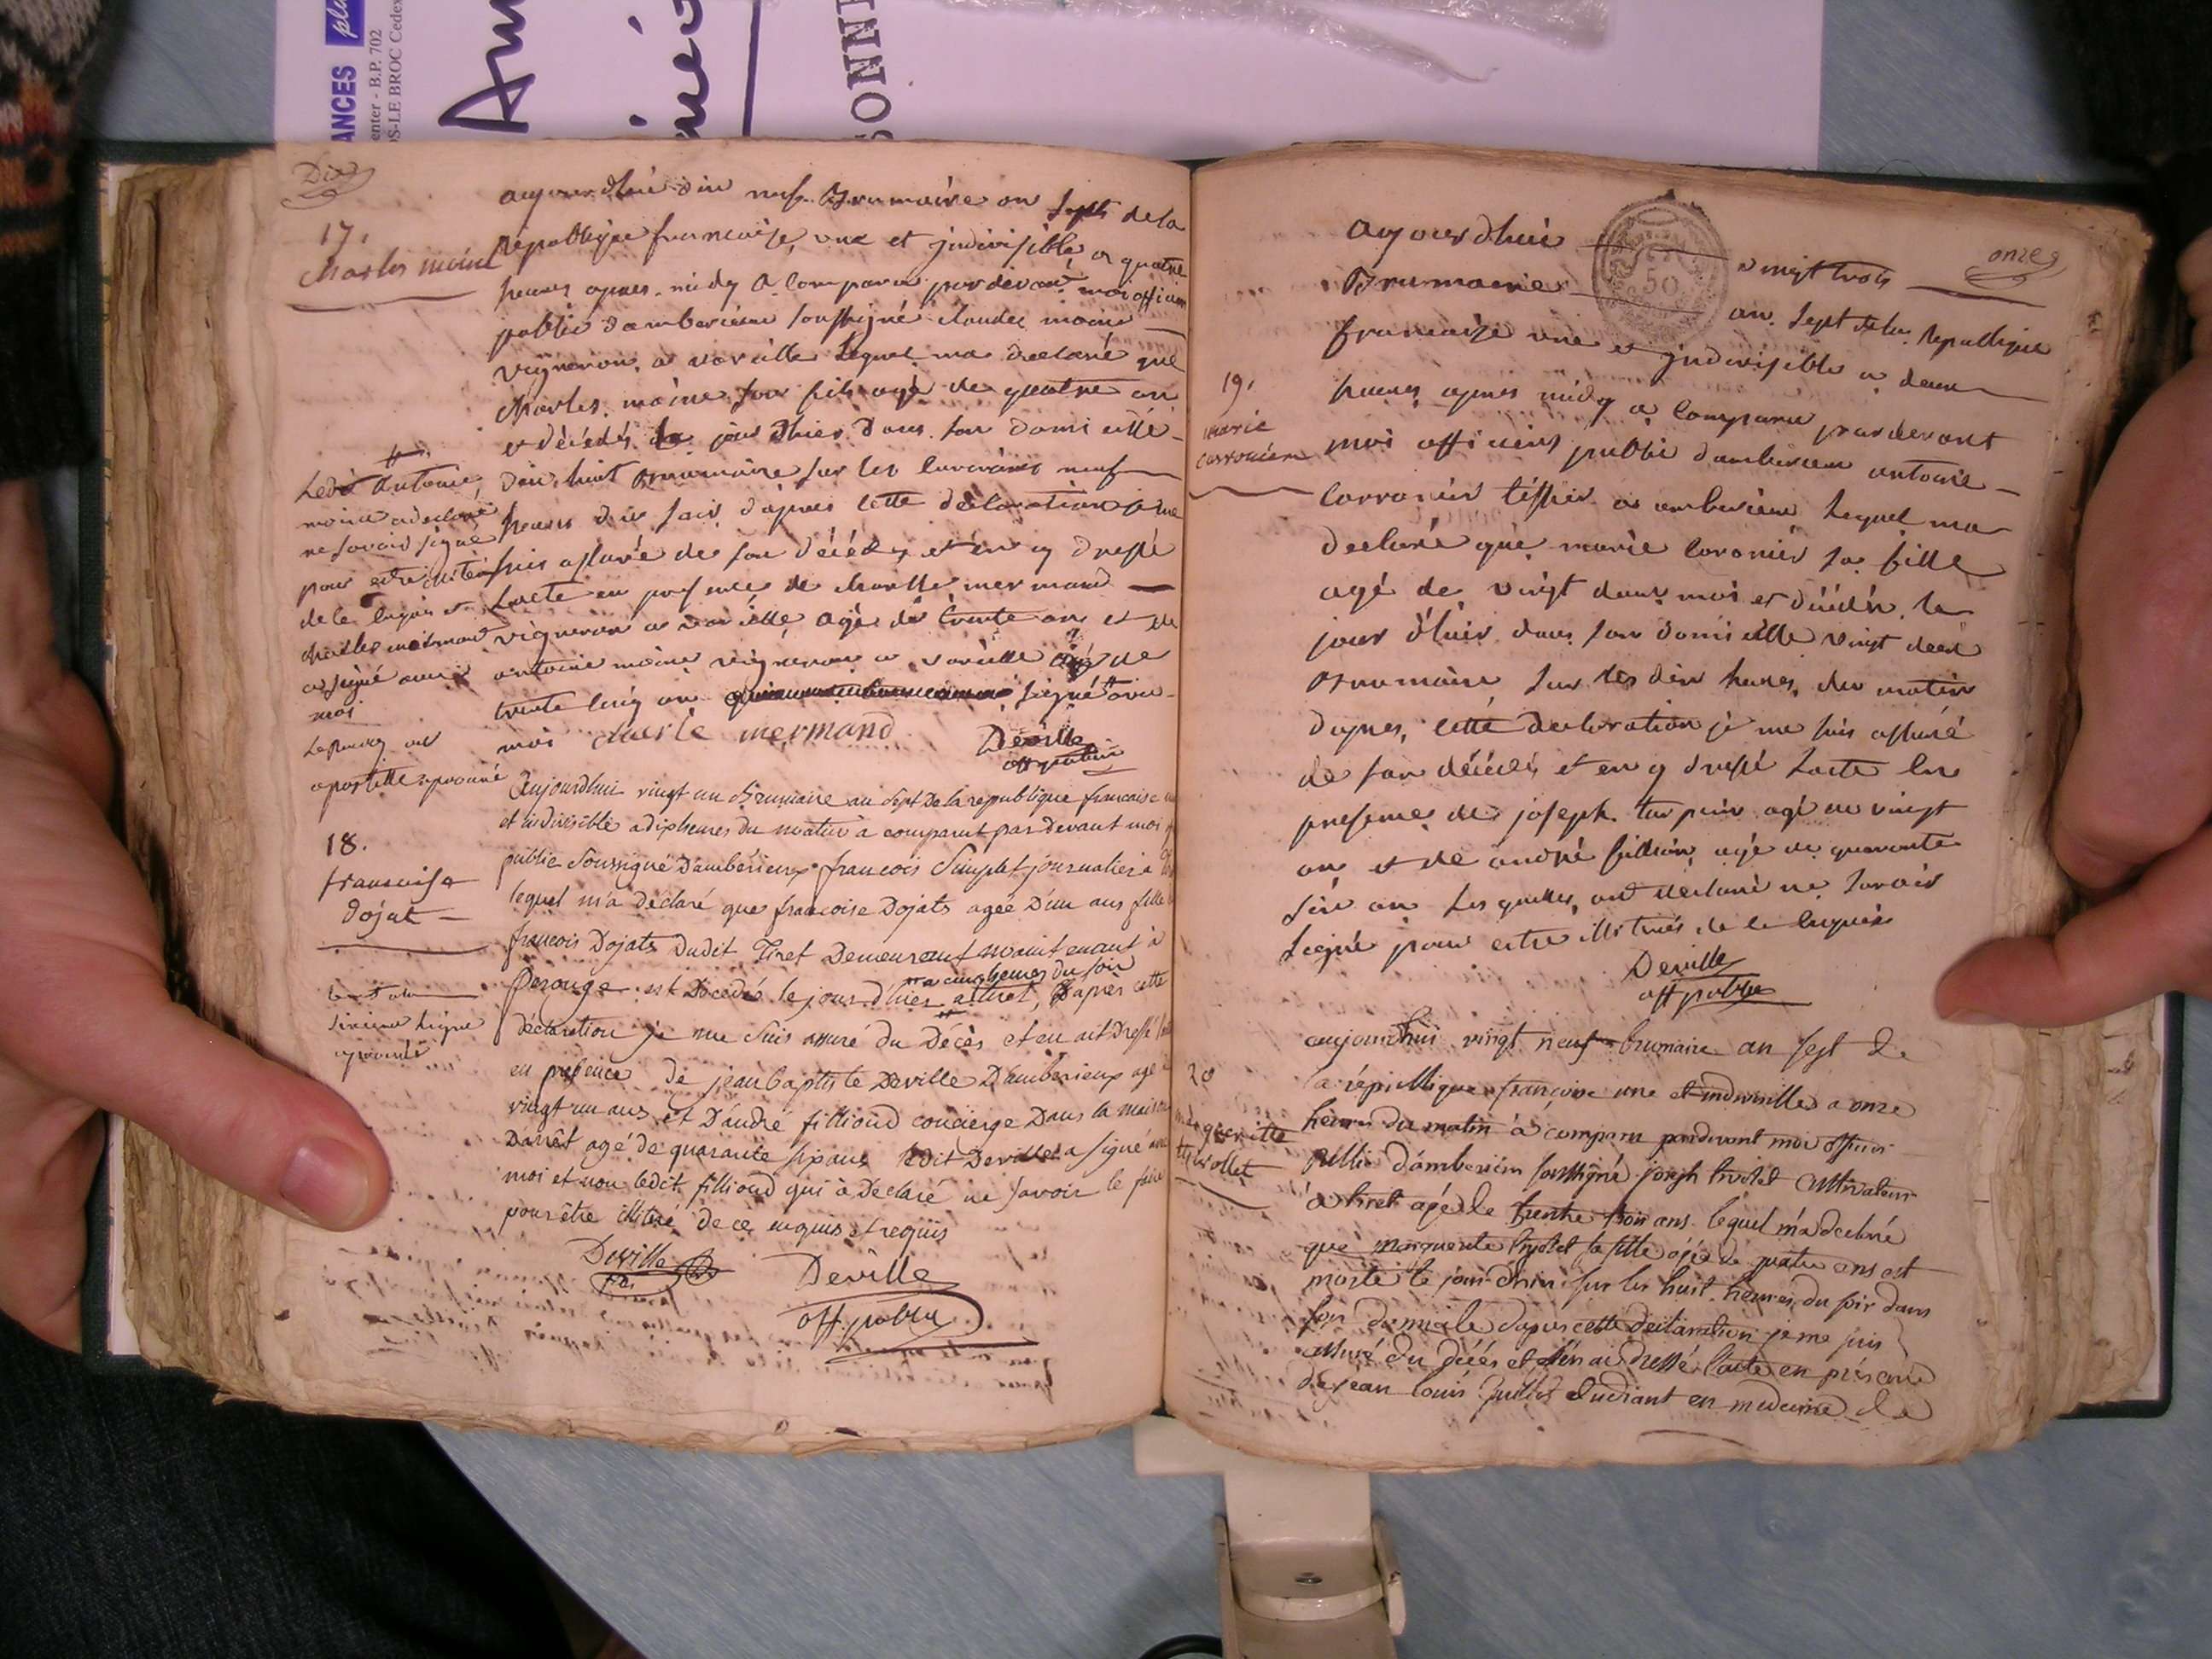 ANCES
enter - B.P. 702
OS-LE BROC Cedex
SONN
Dix
17.
Charles moine
aujourdhui dix neuf Brumaire an sept de la
Republique francoise, une et indivisible a quatre
heures apres midy a comparu pardevant moi officier
public damberieux soussigné claude moine
vigneron a vareille lequel ma declaré que
charles moine son fils agé de quatre an
et décédés le jour dhier dans son domicille
dix huit Brumaire sur les neuf
heures du soir d'apres cette declaration je me
suis assuré de son décéds et en y dressé
Lacte en presence de charle mermand
vigneron a vareille agé de trente an et de
antoine moine vigneron a vareille agé de
trente cinq an signé avec
moi charle mermand Deville
off public
Ledit antoine
moine a declaré
ne savoir signé
pour estre
de le enquis et
charle mermand
a signé avec
moi
apostille aprouvé
18.
francoise
dojat
Aujourdhui vingt un Brumaire an sept De la republique francaise
et indivisible a dix heures du matin a comparut par devant moi
public Soussigné Dambérieux francois Simplet journalier à
lequel m'a déclaré que francoise Dojats agée D'un ans fille
francois Dojats Dudit Tiret Demeurant maintenant à
Perouge est Décedée le jour d'hier a cinq heures du soir a tiret, D'après cette
déclaration je me suis assuré du Décès et en ait Dressé
en présence de jean baptiste Deville D'amberieux agé
vingt un ans et D'andré fillioud concierge Dans la maison
D'arrêt agé de quarante six ans ledit Deville a signé avec
moi et non ledit fillioud qui à Déclaré ne savoir le faire
pour être illitéré de ce enquis et requis
Deville
fils
Deville
off public
aprouvé
onze
aujourdhui vingt trois
Brumaire an sept de la Republique
francoise une et indivisible a deux
heures apres midy a comparu pardevant
moi officiers public damberieux antoine
Corronier téssier a amberieux lequel ma
declaré que marie Coronier sa fille
agé de vingt deux moi et décédé le
jour d'hier dans son domicille vingt deux
Brumaire sur les dix heures du matin
dapres cette declaration je me suis assuré
de son décédés et en y dressé Lacte en
presence de joseph agé de vingt
an et de andré fillion agé de quarante
six an Les quelles ont declaré ne savoir
signé pour estre illitirés de le enquis
Deville
off public
19.
marie
corronier
20
marguerite
trivollet
aujourdhui vingt neuf brumaire an sept de
la république françoise une et indivisible a onze
heures du matin à comparu pardevant moi officier
public d'amberieu soussigné joseph trivolet cultivateur
à tiret agé de trente trois ans lequel m'a declaré
que marguerite trivolet sa fille agée de quatre ans est
morte le jour d'hier sur les huit heures du soir dans
son domicile d'apres cette declaration je me suis
assuré du décés et j'en ai dressé l'acte en présence
de jean louis etudiant en medecine de